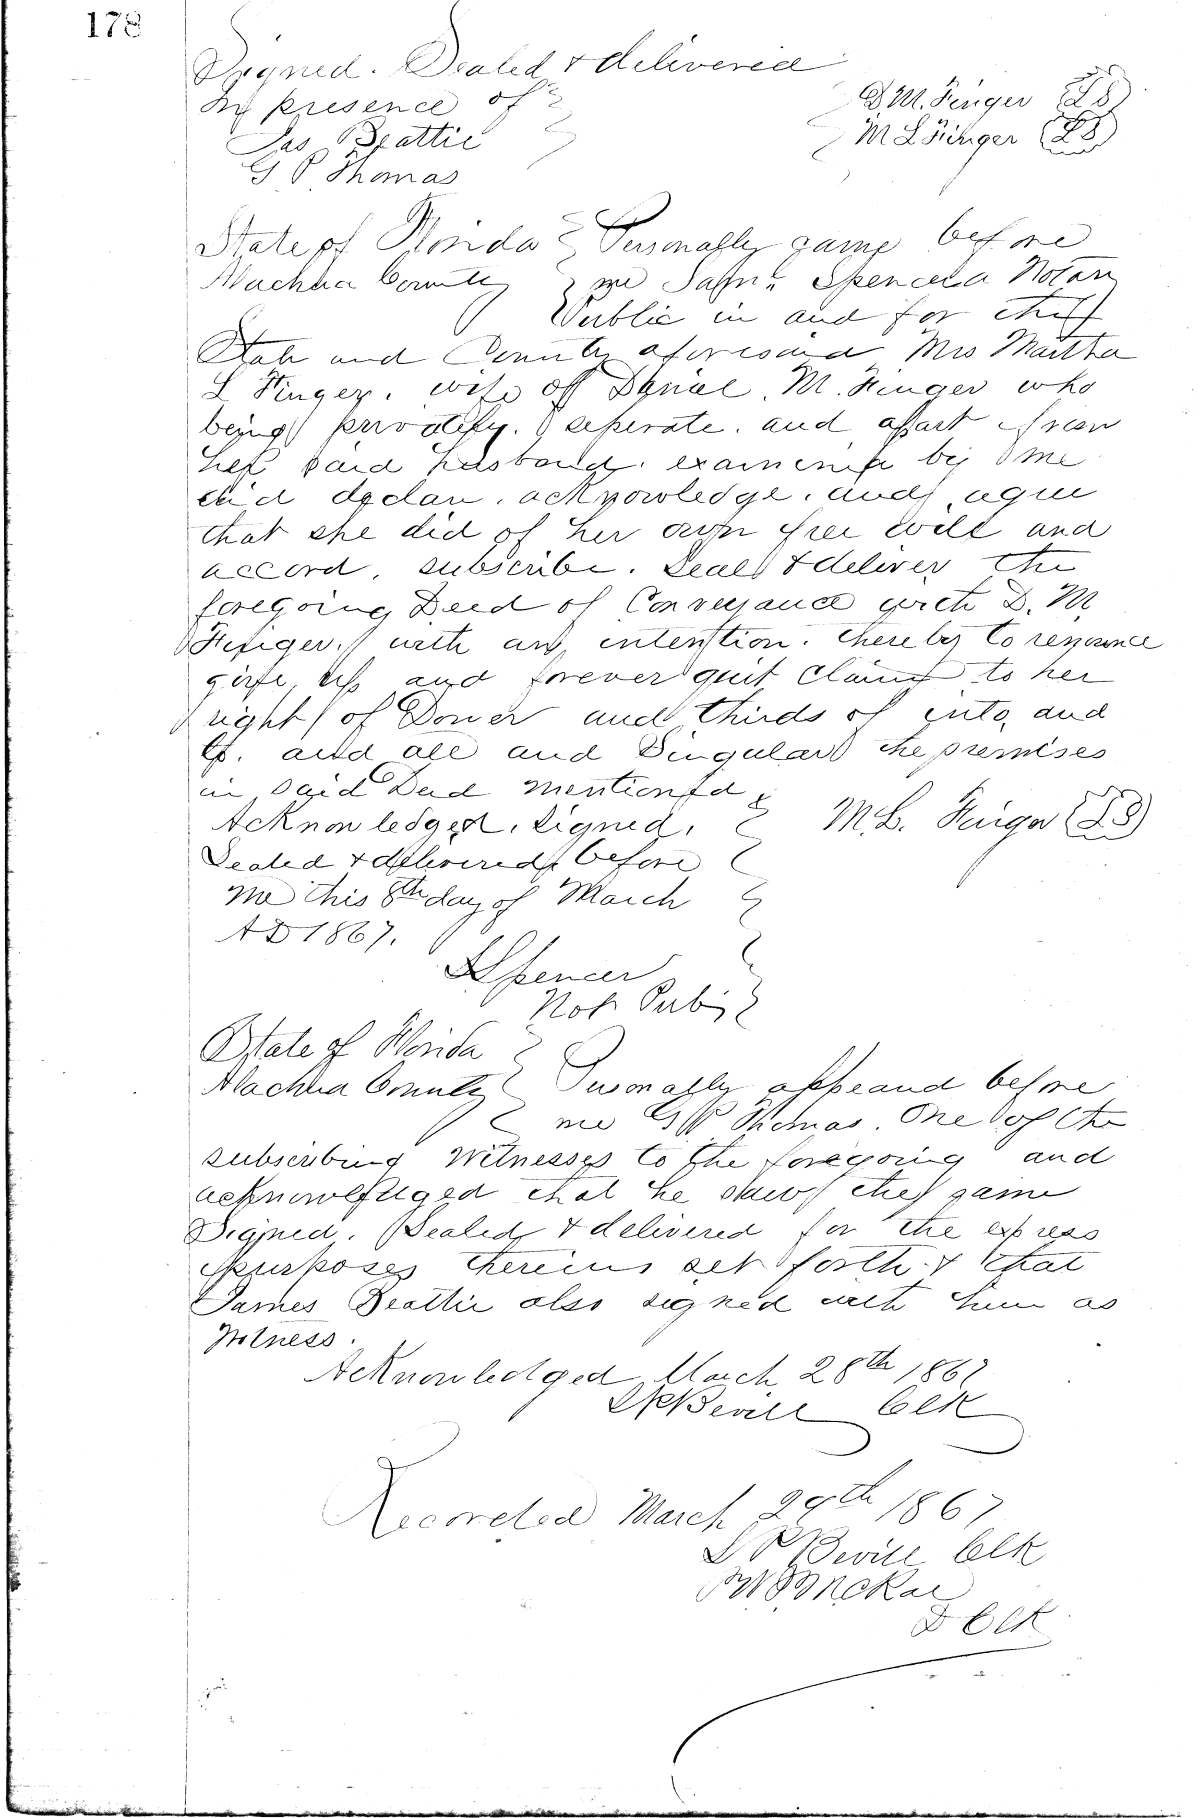 178
Signed. Sealed & delivered
In presence of
D M. Finger (LS)
Jas Beattie
M L Finger (LS)
G P Thomas
State of Florida Personally came before
Alachua County me Saml Spencer a Notary
Public in and for the
State and County aforesaid Mrs Martha
L Finger. wife of Daniel. M. Finger who
being privately. seperate. and apart from
her said husband. examined by me
did declare. acknowledge. and agree
that she did of her own free will and
accord. subscribe. Seal & deliver the
foregoing Deed of Conveyance with D. M.
Finger. with an intention. thereby to renounce
give up and forever quit claim to her
right of Dower and thirds of into, and
to. and all and Singular the premises
in said Deed mentioned
Acknowledged, Signed, M. L. Finger (LS)
Sealed & delivered before
me this 8th day of March
AD 1867.
S Spencer
Not Pub
State of Florida
Alachua County Personally appeard before
me G P Thomas. One of the
subscribing Witnesses to the foregoing and
acknowledged that he saw the same
Signed. Sealed & delivered for the express
purposes therein set forth & that
James Beattie also signed with him as
Witness.
Acknowledged March 28th 1867
Bevill Clk
Recorded March 29th 1867
Bevill Clk
McRae
D Clk